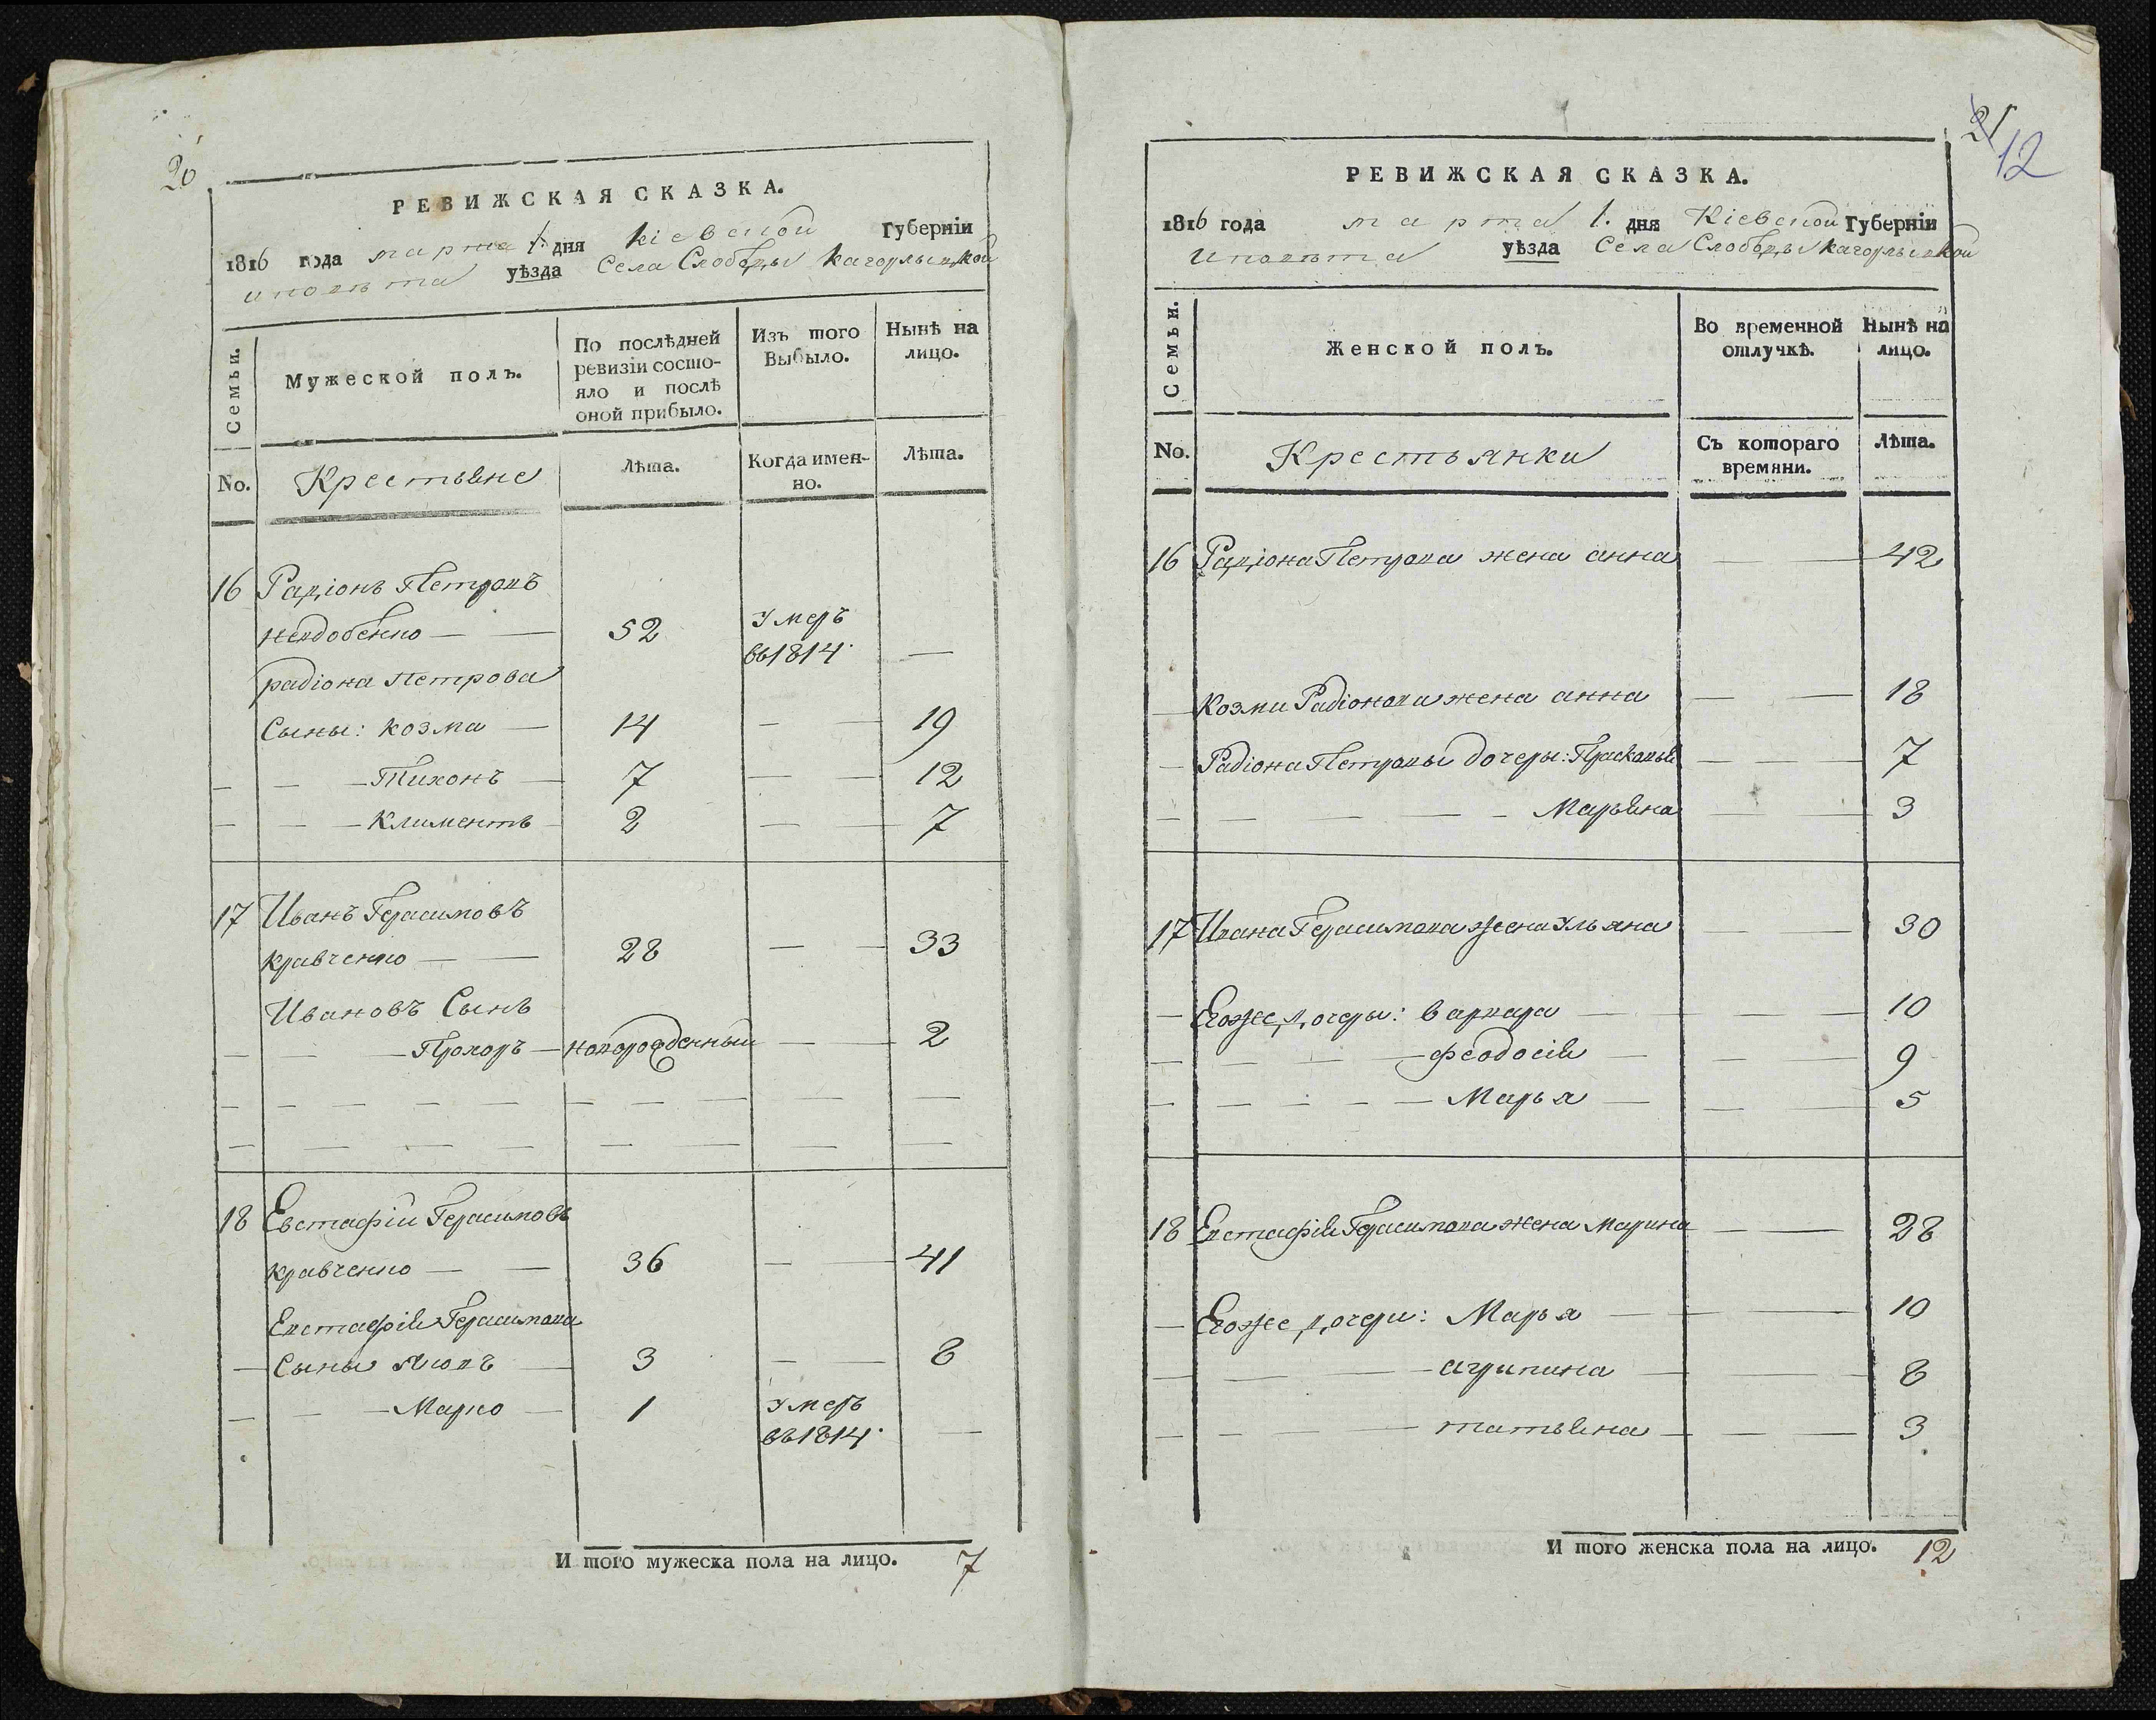 20
РЕВИЖСКАЯ СКАЗКА.
1816 года марта 1. дня Кіевской Губерніи
уѣзда Села Слободы Кагорлыцкой
Семьи.
Мужеской полъ.
По послѣдней ревизіи состо-
яло и послѣ
оной прибыло.
Изъ того
Выбыло.
Нынѣ на
лицо.
No.
Крестьяне
Лѣта.
Когда имен-
но.
Лѣта.
16 Радіонъ Петровъ
52 умеръ
въ 1814. —
радіона Петрова
Сыны: козма — 14 — — 19
— — — Тихонъ — 7 — — 12
— — — Климентъ — 2 — — 7
17 Иванъ Герасимовъ
кравченко — — 28 — — 33
Ивановъ Сынъ
— — — Прохоръ — новорожденный — — 2
18 Евстафій Герасимовъ
кравченко — — 36 — — 41
Евстафія Герасимова
— Сыны Яковъ — 3 — — 8
— — — Марко — 1 умеръ
въ 1814. —
И того мужеска пола на лицо. 7
21
12
РЕВИЖСКАЯ СКАЗКА.
1816 года марта 1. дня Кіевской Губерніи
уѣзда Села Слободы Кагорлыцкой
Семьи.
Женской полъ.
Во временной
отлучкѣ.
Нынѣ на
лицо.
No.
Крестьянки
Съ котораго
времяни.
Лѣта.
16 Радіона Петрова жена анна — — 42
— Козми Радіонова жена анна — — 18
— Радіона Петровы дочеры: Прасковья — — 7
— — — — — Марьяна — — 3
17 Ивана Герасимова жена Ульяна — — 30
— Егоже дочеры: варвара — — — 10
— — — — феодосія — — — 9
— — — — — Марья — — — 5
18 Евстафія Герасимова жена Марина — — 28
— Егоже дочери: Марья — — — 10
— — — агрипина — — — 8
— — — — татьяна — — — 3
И того женска пола на лицо. 12